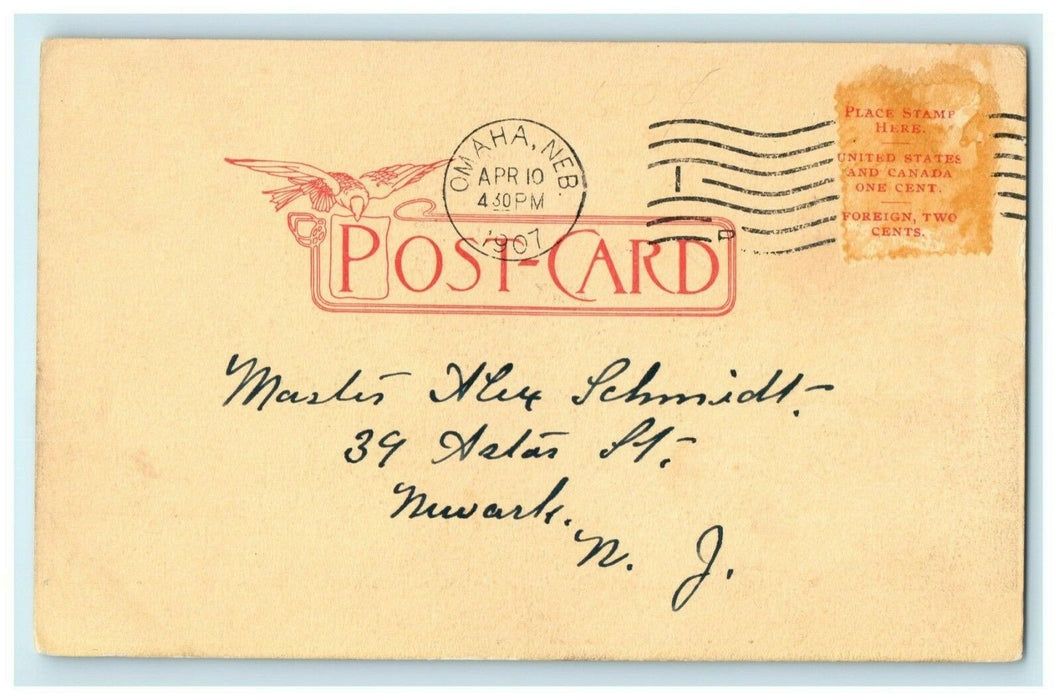 OMAHA, NEB
APR 10
4 30 PM
1907
1
D
PLACE STAMP
HERE.
UNITED STATES
AND CANADA
ONE CENT.
FOREIGN, TWO
CENTS.
POST-CARD
Master Alex Schmidt.
39 Astor St.
Newark.
N. J.